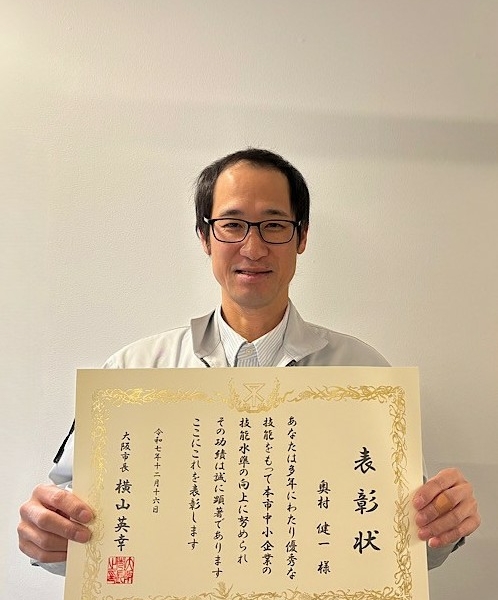 表彰状
奥村 健一 様
あなたは多年にわたり優秀な
技能をもって本市中小企業の
技能水準の向上に努められ
その功績は誠に顕著であります
ここにこれを表彰します
令和七年十二月十六日
大阪市長 横山英幸